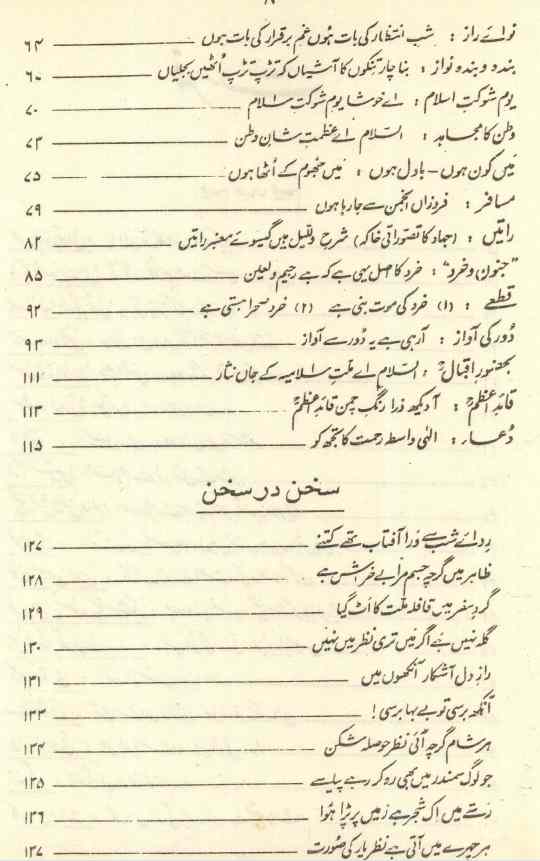 ۸
نوائے راز : شبِ انتظار کی بات ہُوں غمِ بر قرار کی بات ہوں ۶۴
بندہ و بندہ نواز : بنا چار تنکوں کا آشیاں کہ تڑپ تڑپ اُٹھیں بجلیاں ۶۰
یومِ شوکتِ اسلام : اے خوشا یومِ شوکتِ اسلام ۷۰
وطن کا مجاہد : السّلام اے عظمتِ شانِ وطن ۷۳
مَیں کون ہوں – بادل ہوں : مَیں جُھوم کے اُٹھا ہوں ۷۵
مسافر : فروزاں انجمن سے جا رہا ہوں ۷۹
راتیں : (جہاد کا تصوّراتی خاکہ) شرحِ والّیل میں گیسوئے معنبر راتیں ۸۲
"جنون و خرد" : خرد کا حاصل یہی ہے کہ ہے رحیم و لعین ۸۵
قطعے : (۱) خرد کی موت بنی ہے (۲) خرد صحرا بستی ہے ۹۲
دُور کی آواز : آ رہی ہے یہ دُور سے آواز ۹۳
بحضورِ اقبالؒ : السّلام اے ملّتِ اسلامیہ کے جاں نثار ۱۱۱
قائدِ اعظمؒ : آ دیکھ ذرا رنگِ چمن قائدِ اعظمؒ ۱۱۳
دُعاء : الٰہی واسطہ رحمت کا تجھ کو ۱۱۵
سخن در سخن
ردائے شب سے وَرا آفتاب تھے کتنے ۱۲۷
ظاہر میں گرچہ جسم مرا بے خراش ہے ۱۲۸
گردِ سفر میں قافلہ ملّت کا اَٹ گیا ۱۲۹
گلہ نہیں ہے اگر مَیں تری نظر میں نہیں ۱۳۰
رازِ دل آشکار آنکھوں میں ۱۳۱
آنکھ برسی تو بے بہا برسی! ۱۳۳
ہر شام گرچہ آئی نظر حوصلہ شکن ۱۳۴
جو لوگ سمندر میں بھی رہ کر رہے پیاسے ۱۳۵
رَستے میں اِک شجر ہے زمیں پر پڑا ہُوا ۱۳۶
ہر چہرے میں آتی ہے نظر یار کی صُورت ۱۳۷